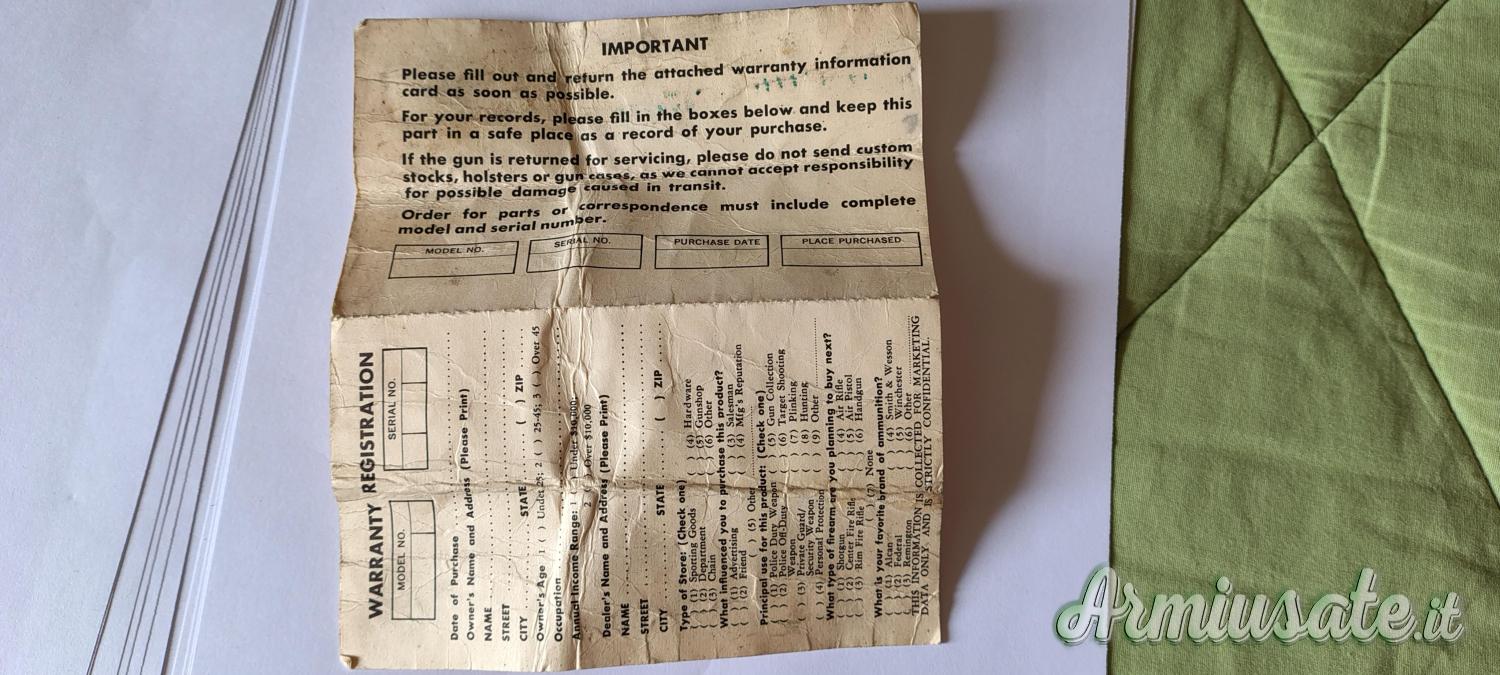 IMPORTANT
Please fill out and return the attached warranty information
card as soon as possible.
For your records, please fill in the boxes below and keep this
part in a safe place as a record of your purchase.
If the gun is returned for servicing, please do not send custom
stocks, holsters or gun cases, as we cannot accept responsibility
for possible damage caused in transit.
Order for parts or correspondence must include complete
model and serial number.
MODEL NO. SERIAL NO. PURCHASE DATE PLACE PURCHASED
WARRANTY REGISTRATION
MODEL NO. SERIAL NO.
Date of Purchase
Owner's Name and Address (Please Print)
NAME
STREET
CITY STATE ( ) ZIP
Owner's Age 1 ( ) Under 25; 2 ( ) 25-45; 3 ( ) Over 45
Occupation
Annual Income Range: 1 ( ) Under $10,000;
2 ( ) Over $10,000
Dealer's Name and Address (Please Print)
NAME
STREET
CITY STATE ( ) ZIP
Type of Store: (Check one)
( ) (1) Sporting Goods ( ) (4) Hardware
( ) (2) Department ( ) (5) Gunshop
( ) (3) Chain ( ) (6) Other
What influenced you to purchase this product?
( ) (1) Advertising ( ) (3) Salesman
( ) (2) Friend ( ) (4) Mfg's Reputation
( ) (5) Other
Principal use for this product: (Check one)
( ) (1) Police Duty Weapon ( ) (5) Gun Collection
( ) (2) Police Off-Duty ( ) (6) Target Shooting
Weapon ( ) (7) Plinking
( ) (3) Private Guard/ ( ) (8) Hunting
Security Weapon ( ) (9) Other
( ) (4) Personal Protection
What type of firearm are you planning to buy next?
( ) (1) Shotgun ( ) (4) Air Rifle
( ) (2) Center Fire Rifle ( ) (5) Air Pistol
( ) (3) Rim Fire Rifle ( ) (6) Handgun
( ) (7) None
What is your favorite brand of ammunition?
( ) (1) Alcan ( ) (4) Smith & Wesson
( ) (2) Federal ( ) (5) Winchester
( ) (3) Remington ( ) (6) Other
THIS INFORMATION IS COLLECTED FOR MARKETING
DATA ONLY, AND IS STRICTLY CONFIDENTIAL.
Armiusate.it